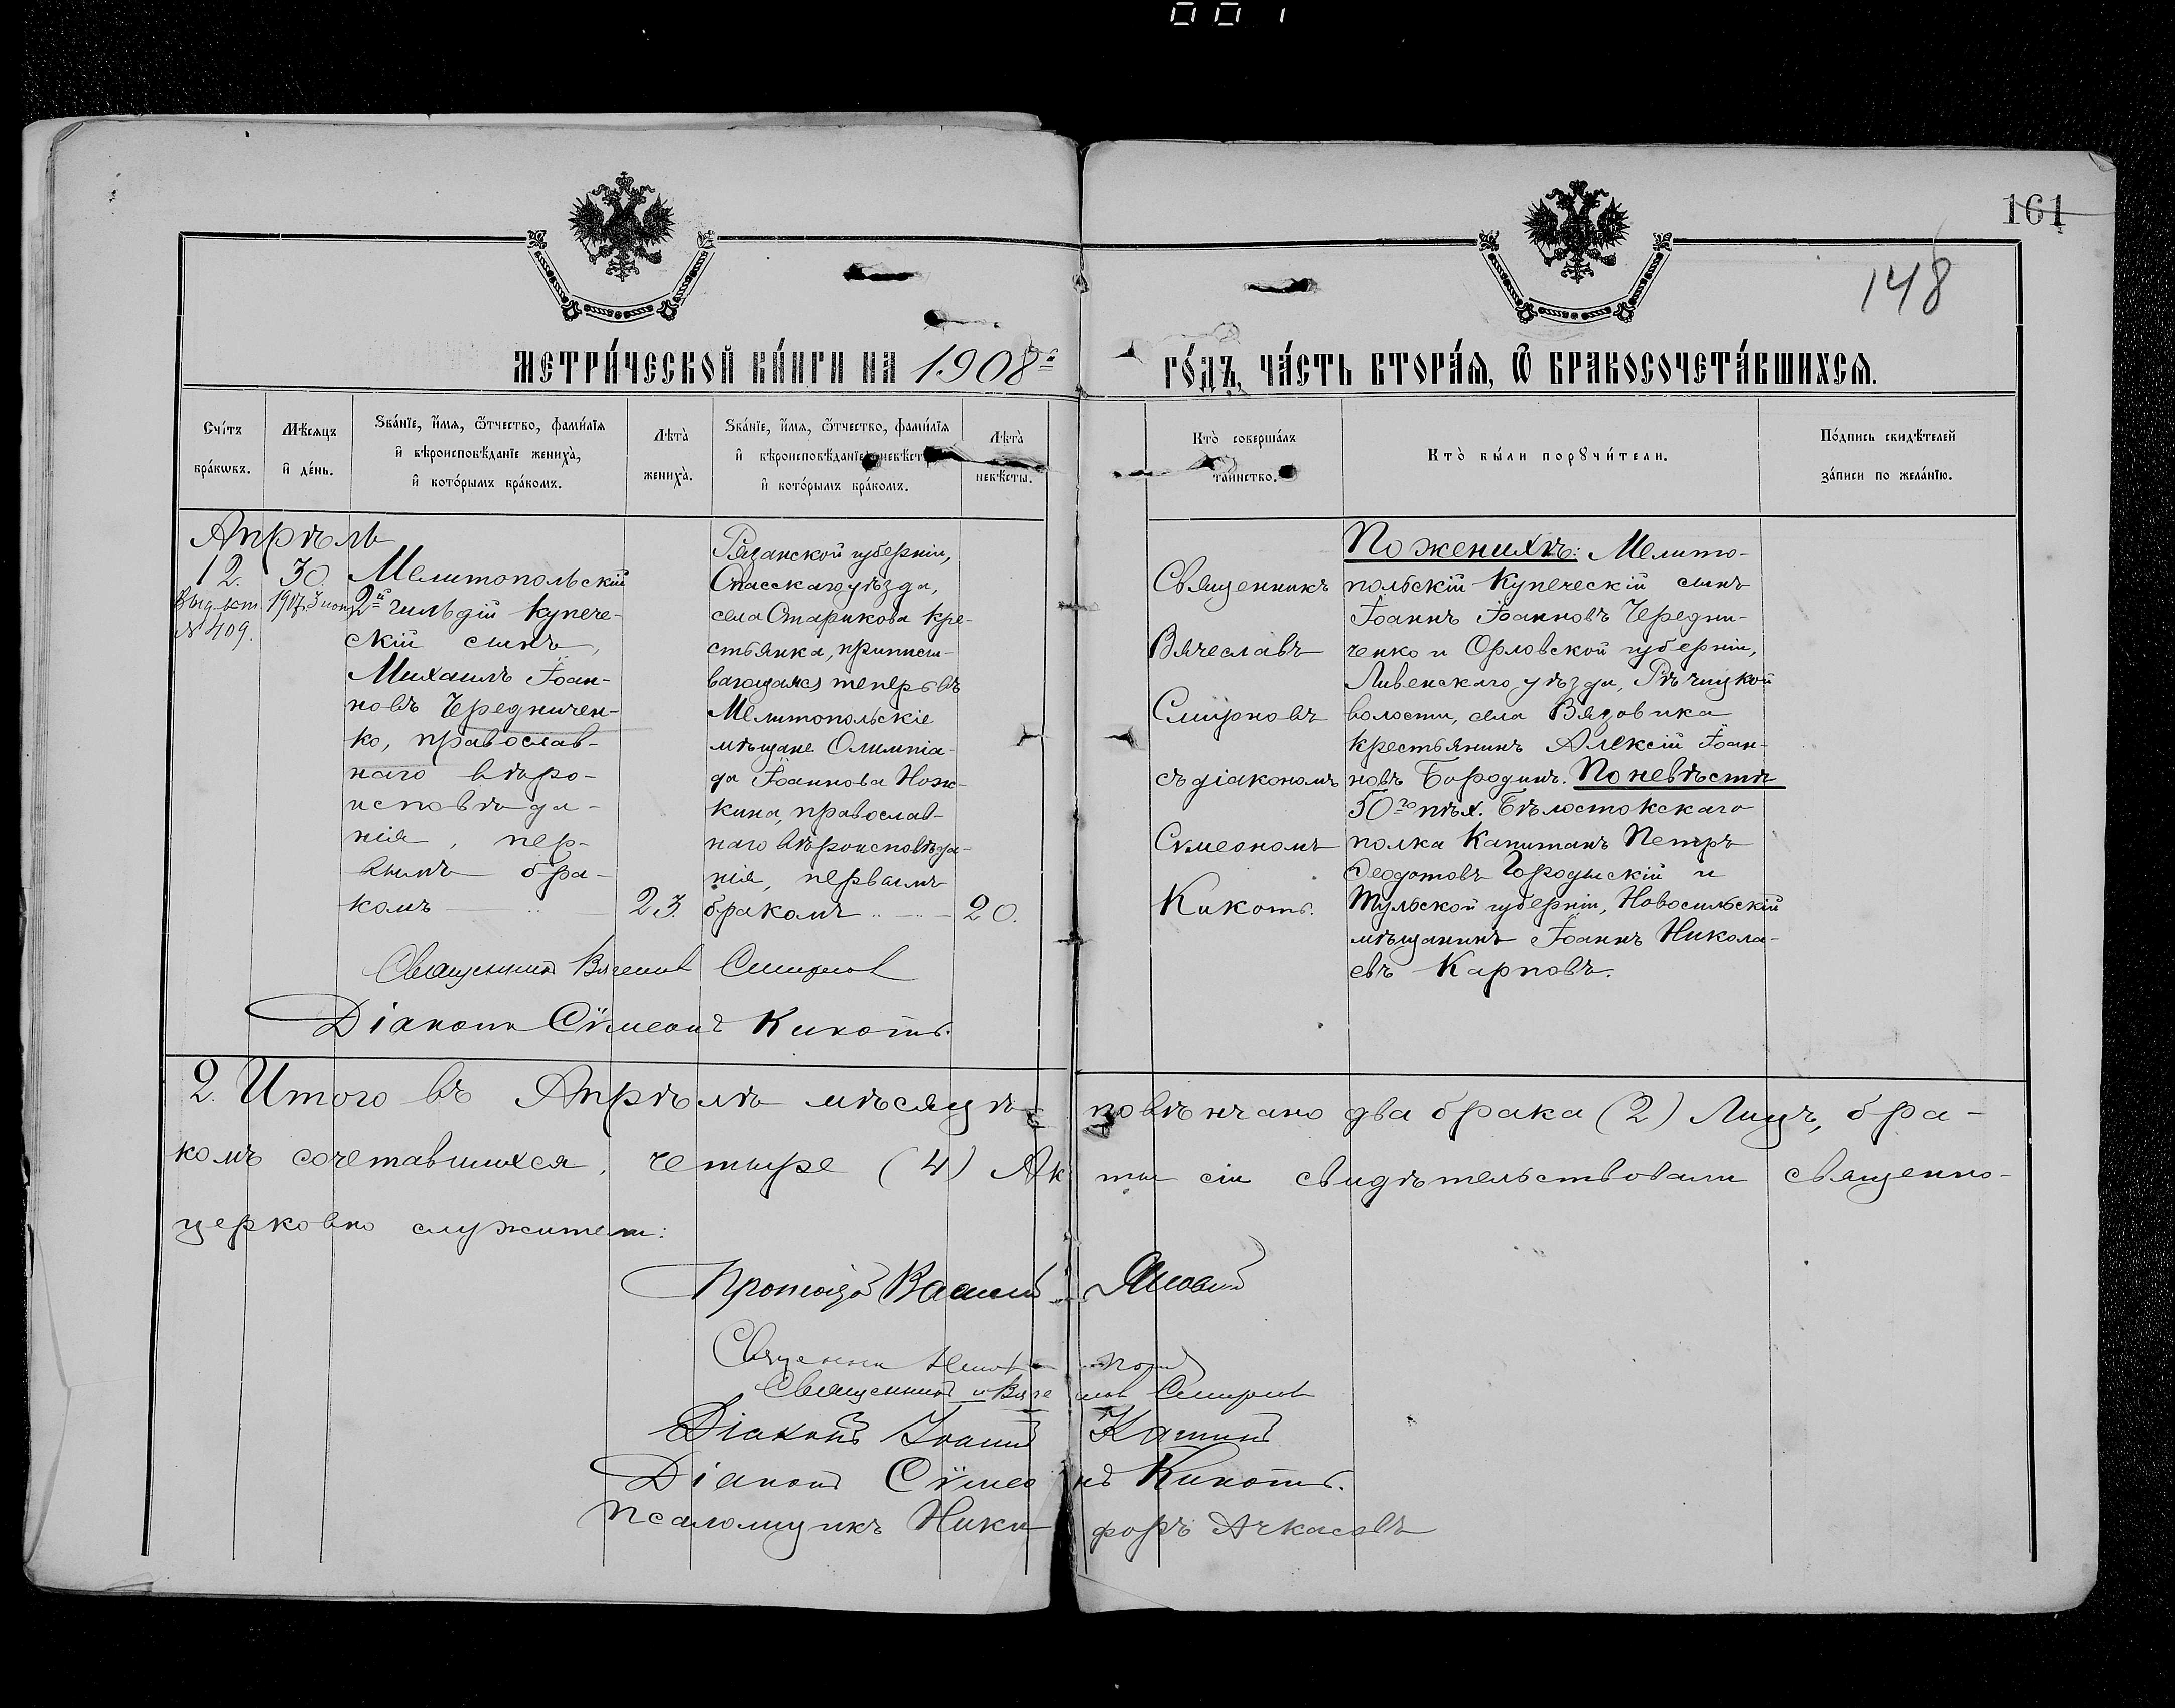 001
161
148
МЕТРИ́ЧЕСКОЙ КНИ́ГИ НА 1908 г
ГО́ДЪ, ЧА́СТЬ ВТОРА́Я, Ѿ БРАКОСОЧЕТА́ВШИХСЯ.
Сче́тъ
бра́кѡвъ.
Мѣ́сяцъ
и҆ де́нь.
Ѕва́нїе, и҆́мя, ѻ҆́тчество, фами́лїя
и҆ вѣроисповѣ́данїе жениха̀,
и҆ кото́рымъ бра́комъ.
Лѣта̀
жениха̀.
Ѕва́нїе, и҆́мя, ѻ҆́тчество, фами́лїя
и҆ вѣроисповѣ́данїе невѣ́сты
и҆ кото́рымъ бра́комъ.
Лѣта̀
невѣ́сты.
Кто̀ соверша́лъ
таинство.
Кто̀ бы́ли порꙋчи́тели.
По́дпись свидѣ́телей
за́писи по жела́нїю.
Апрѣль
12. 30.
№ 409.
Мелитопольскій
2й гильдіи купече-
скій сынъ,
Михаилъ Іоан-
новъ Чередничен-
ко, православ-
наго вѣро-
исповѣда-
нія, пер-
вымъ бра-
комъ 23.
Рязанской губерніи,
Спасскаго уѣзда,
села Старикова кре-
стьянка, приписы-
вающаяся теперь въ
Мелитопольскіе
мѣщане Олимпіа-
да Іоаннова Нож-
кина, православ-
наго вѣроисповѣда-
нія, первымъ
бракомъ 20.
Священникъ
Вячеславъ
Смирновъ
съ діакономъ
Сѵмеономъ
Кикоть.
По женихѣ: Мелито-
польскій купеческій сынъ
Іоаннъ Іоанновъ Чередни-
ченко и Орловской губерніи,
Ливенскаго уѣзда, Рѣчицкой
волости, села Вязовика
крестьянинъ Алексій Іоан-
новъ Бородинъ. По невѣстѣ
50го пѣх. Бѣлостокскаго
полка Капитанъ Петръ
Ѳеодотовъ Городыскій и
Тульской губерніи, Новосильскій
мѣщанинъ Іоаннъ Никола-
евъ Карповъ.
Священникъ Вячеславъ Смирновъ
Діаконъ Сѵмеонъ Кикоть.
2. Итого въ Апрѣлѣ мѣсяцѣ повѣнчано два брака (2) Лицъ, бра-
комъ сочетавшихся, четыре (4) Акты сіи свидѣтельствовали священно-
церковно служители:
Протоіер Василій
Священник
Священникъ Вячеслав Смирнов
Діаконъ Іоаннъ
Діаконъ Сѵмеонъ Кикоть.
Псаломщикъ Никифоръ Ачкасовъ